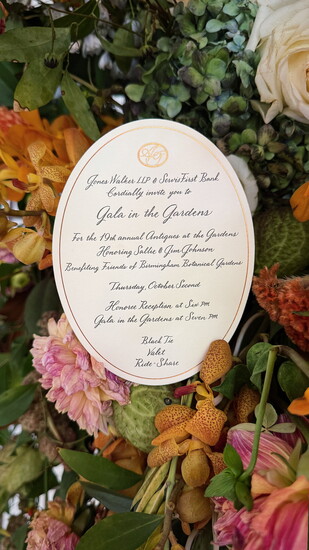 Jones Walker LLP & ServisFirst Bank
Cordially invite you to
Gala in the Gardens
For the 19th annual Antiques at the Gardens
Honoring Sallie & Jim Johnson
Benefiting Friends of Birmingham Botanical Gardens
Thursday, October Second
Honoree Reception at Six PM
Gala in the Gardens at Seven PM
Black Tie
Valet
Ride-Share